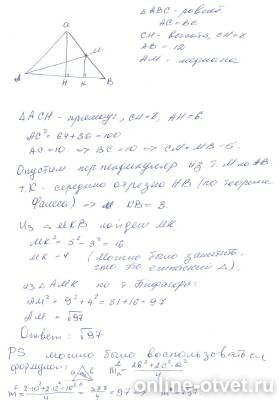 △ABC - равноб.
AC=BC
CH - высота, CH=8
AB = 12
AM - медиана
C
M
A H K B
△ACH - прямоуг, CH=8, AH=6
AC² = 64+36=100
AC=10 => BC=10 => CM=MB=5.
Опустим перпендикуляр из т. M на AB
т. K - середина отрезка HB (по теореме
Фалеса) => KB=3
Из △MKB найдем MK
MK² = 5²-3²=16
MK=4 (Можно было заметить,
что это египетский △).
из △AMK по т. Пифагора:
AM² = 9²+4² = 81+16=97
AM = √97
Ответ: √97
PS. можно было воспользоваться
формулой: a b c m²a = 2b²+2c²-a² / 4
m² = 2·10²+2·12²-10² / 4 = 97 => m²=97
online-otvet.ru